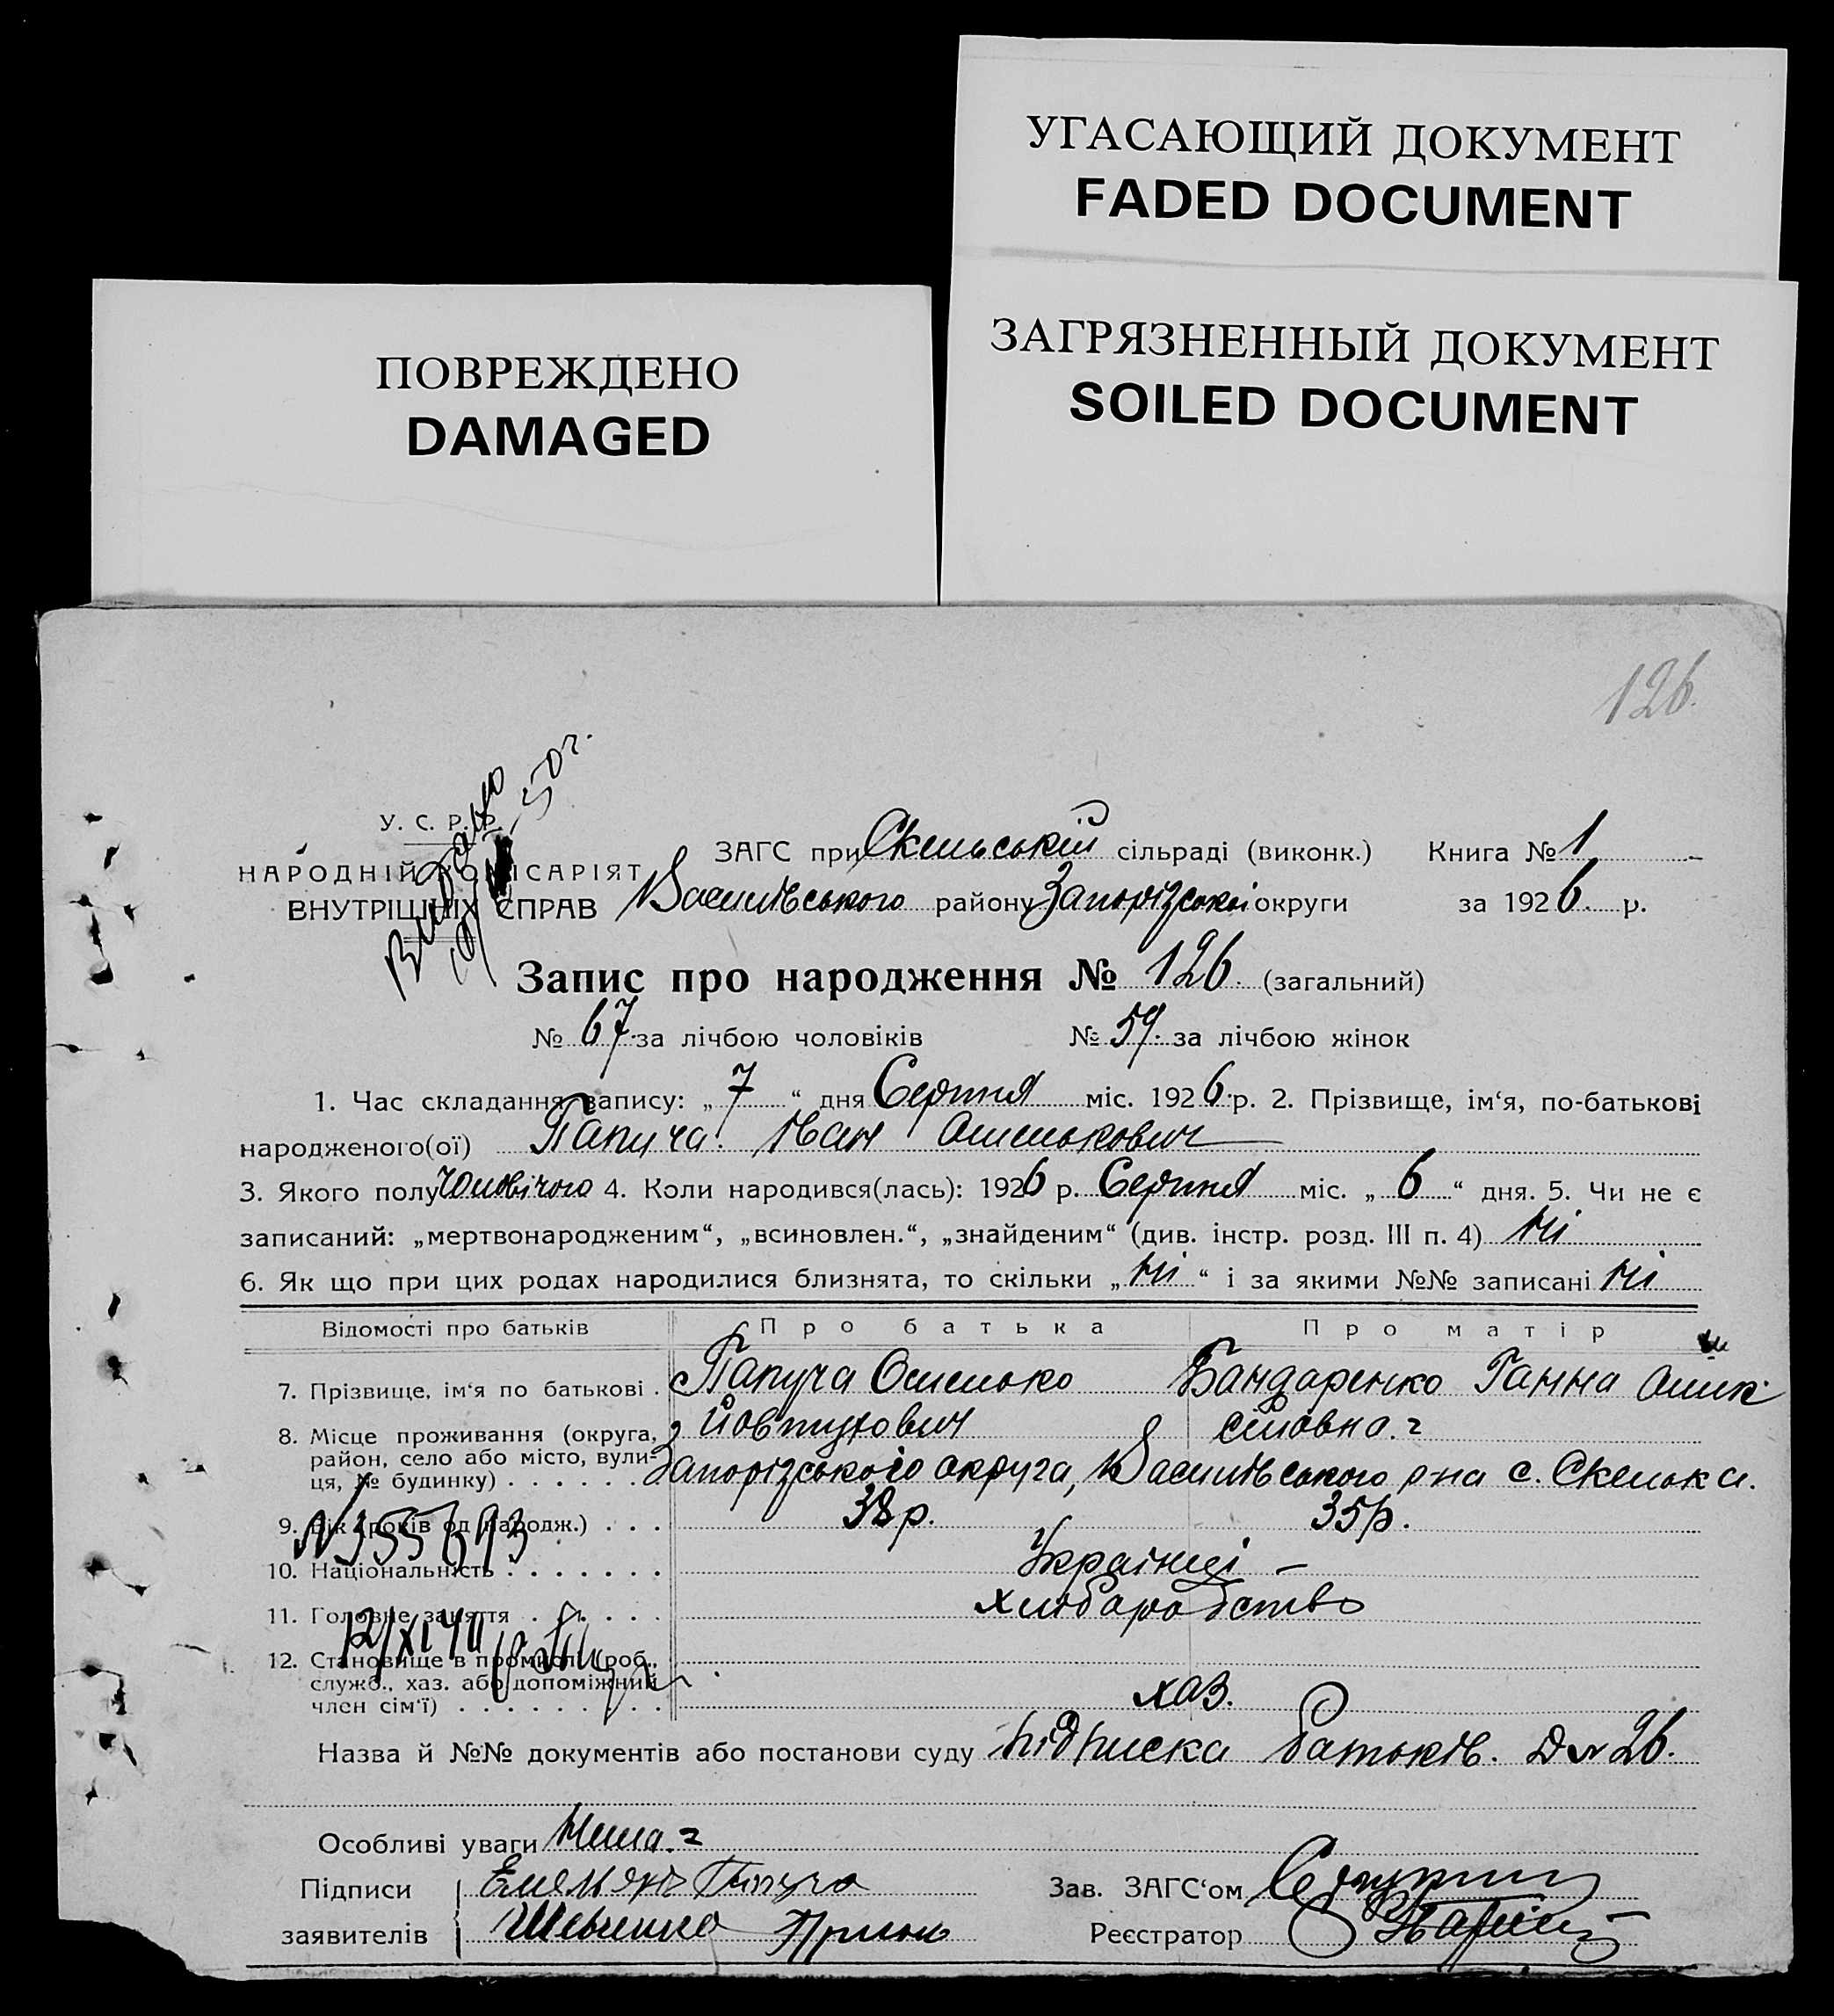 УГАСАЮЩИЙ ДОКУМЕНТ
FADED DOCUMENT
ЗАГРЯЗНЕННЫЙ ДОКУМЕНТ
SOILED DOCUMENT
ПОВРЕЖДЕНО
DAMAGED
126.
У. С. Р. Р.
НАРОДНІЙ КОМІСАРІЯТ
ВНУТРІШНІХ СПРАВ
Видано
50 г.
ЗАГС при Скельській сільраді (виконк.) Книга № 1
Василівського району Запорізської округи за 1926. р.
Запис про народження № 126. (загальний)
№ 67. за лічбою чоловіків № 59. за лічбою жінок
1. Час складання запису: „7“ дня Серпня міс. 1926 р. 2. Прізвище, ім‘я, по-батькові
народженого(ої) Папуча Іван Омелькович
3. Якого полу Чоловічого 4. Коли народився(лась): 1926 р. Серпня міс. „6“ дня. 5. Чи не є
записаний: „мертвонародженим“, „всиновлен.“, „знайденим“ (див. інстр. розд. III п. 4) Ні
6. Як що при цих родах народилися близнята, то скільки „Ні“ і за якими №№ записані Ні
Відомості про батьків Про батька Про матір
7. Прізвище, ім‘я по батькові . Папуча Омелько Бандаренко Ганна
Йовтухович
8. Місце проживання (округа,
район, село або місто, вули-
ця, № будинку) . . . . . . Запорізського округа, Василівського р-на с. Скельки.
9. Вік (років од народж.) . . . 38 р. 35 р.
10. Національність . . . . . . . Українці –
11. Головне заняття . . . . . . хліборобство
12. Становище в промислі (роб.,
служб., хаз. або допоміжний
член сім‘ї) . . . . . . . . . хаз.
12/XI 40
Назва й №№ документів або постанови суду підписка батьків. Д № 26.
Особливі уваги Нема.
Підписи Емельян Папуча Зав. ЗАГС‘ом
заявителів Шевченко Реєстратор